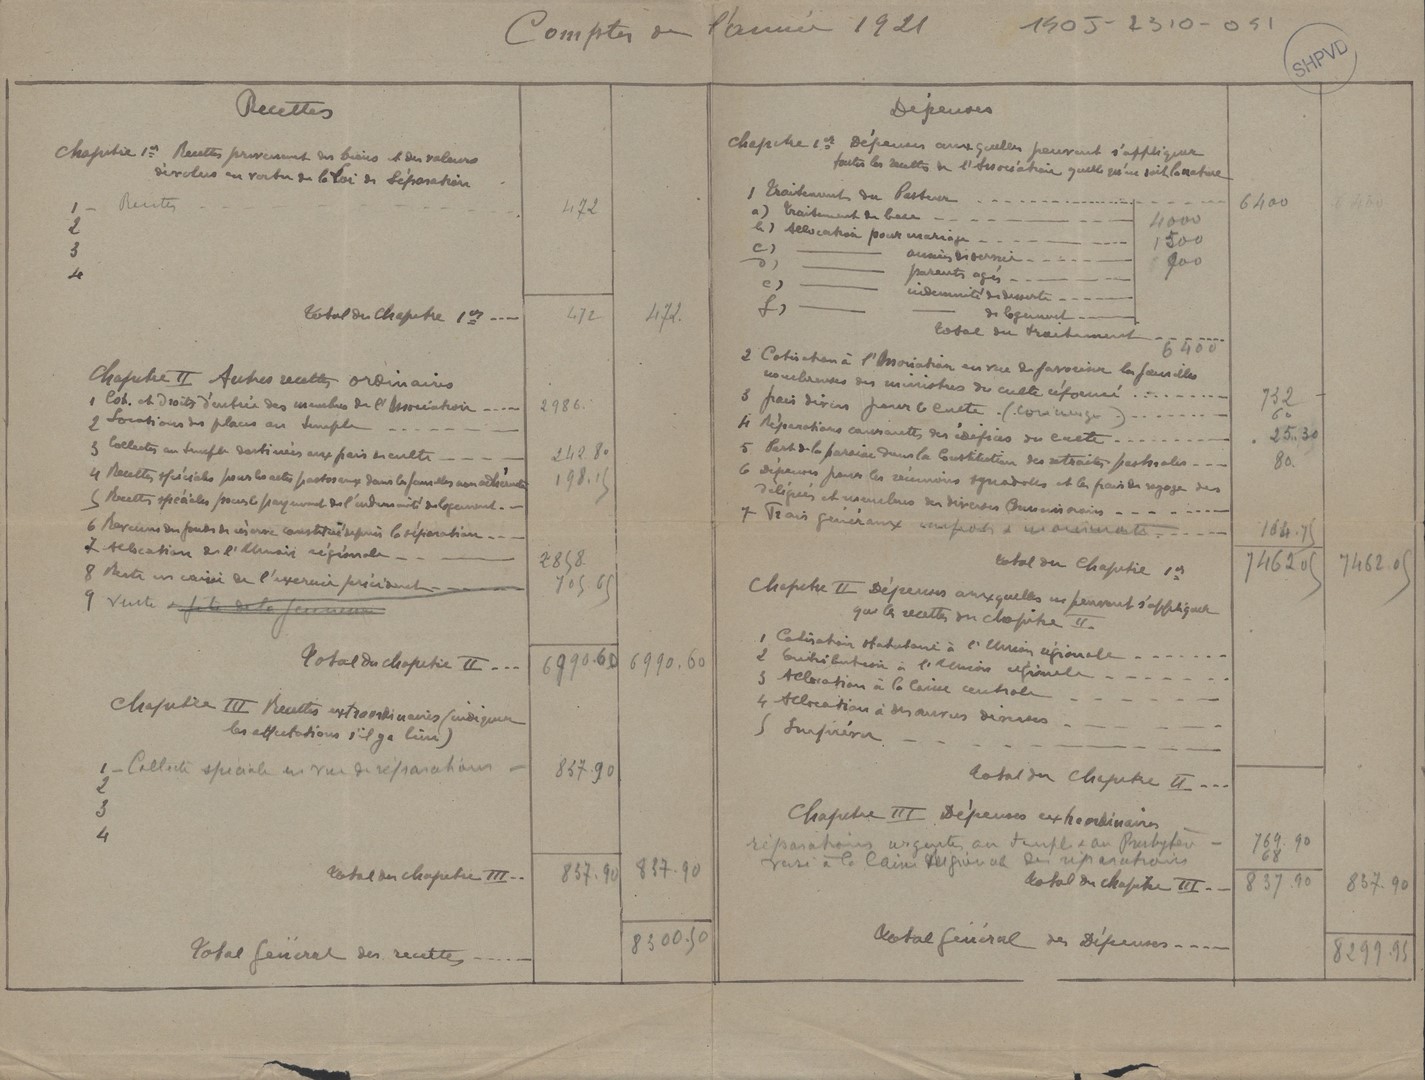 Comptes de l'année 1921
1905-2310-091
SHPVD
Recettes
Chapitre 1er Recettes provenant des biens et des valeurs
dévolus en vertu de la Loi de Séparation
1 - Rentes 472
2
3
4
Total du Chapitre 1er 472 472.
Chapitre II Autres recettes ordinaires
1 Cot. et Droits d'entrée des membres de l'Association 2986.
2 Locations des places au Temple
3 Collectes au Temple destinées aux frais du culte 242.80
4 Recettes spéciales pour les actes pastoraux dans les familles non adhérentes 198.15
5 Recettes spéciales pour le payement de l'indemnité de logement
6 Revenus des fonds de réserve constitués depuis la séparation
7 Allocation de l'Union régionale 2858
8 Reste en caisse de l'exercice précédent 705.65
9 Vente
Total du chapitre II 6990.60 6990.60
Chapitre III Recettes extraordinaires (indiquer
les affectations s'il y a lieu)
1 - Collecte spéciale en vue de réparations 837.90
2
3
4
Total du chapitre III 837.90 837.90
Total Général des recettes 8300.50
Dépenses
Chapitre 1er Dépenses auxquelles peuvent s'appliquer
toutes les recettes de l'Association quelle qu'en soit la nature
1 Traitement du Pasteur 6400
a) Traitement de base 4000
b) Allocation pour mariage 1500
c) années de service 900
d) parents âgés
e) indemnité de desserte
f) de logement
Total du traitement 6400
2 Cotisation à l'Association en vue de favoriser les familles
nombreuses des ministres du culte réformé 732
3 frais divers pour le culte 60
4 Réparations courantes des édifices du culte 25.30
5 Part de la paroisse dans la Constitution des retraites pastorales 80.
6 Dépenses pour les réunions synodales et les frais de voyage des
délégués et membres des diverses Commissions
7 Frais généraux 164.75
Total du Chapitre 1er 7462.05 7462.05
Chapitre II Dépenses auxquelles ne peuvent s'appliquer
que les recettes du chapitre II
1 Cotisation statutaire à l'Union régionale
2 Contribution à l'Union régionale
3 Allocation à la Caisse centrale
4 Allocation à des œuvres diverses
5 Imprévu
Total du Chapitre II
Chapitre III Dépenses extraordinaires
réparations urgentes au temple & au Presbytère 769.90
versé à la Caisse Régional des réparations 68
Total du chapitre III 837.90 837.90
Total Général des Dépenses 8299.95